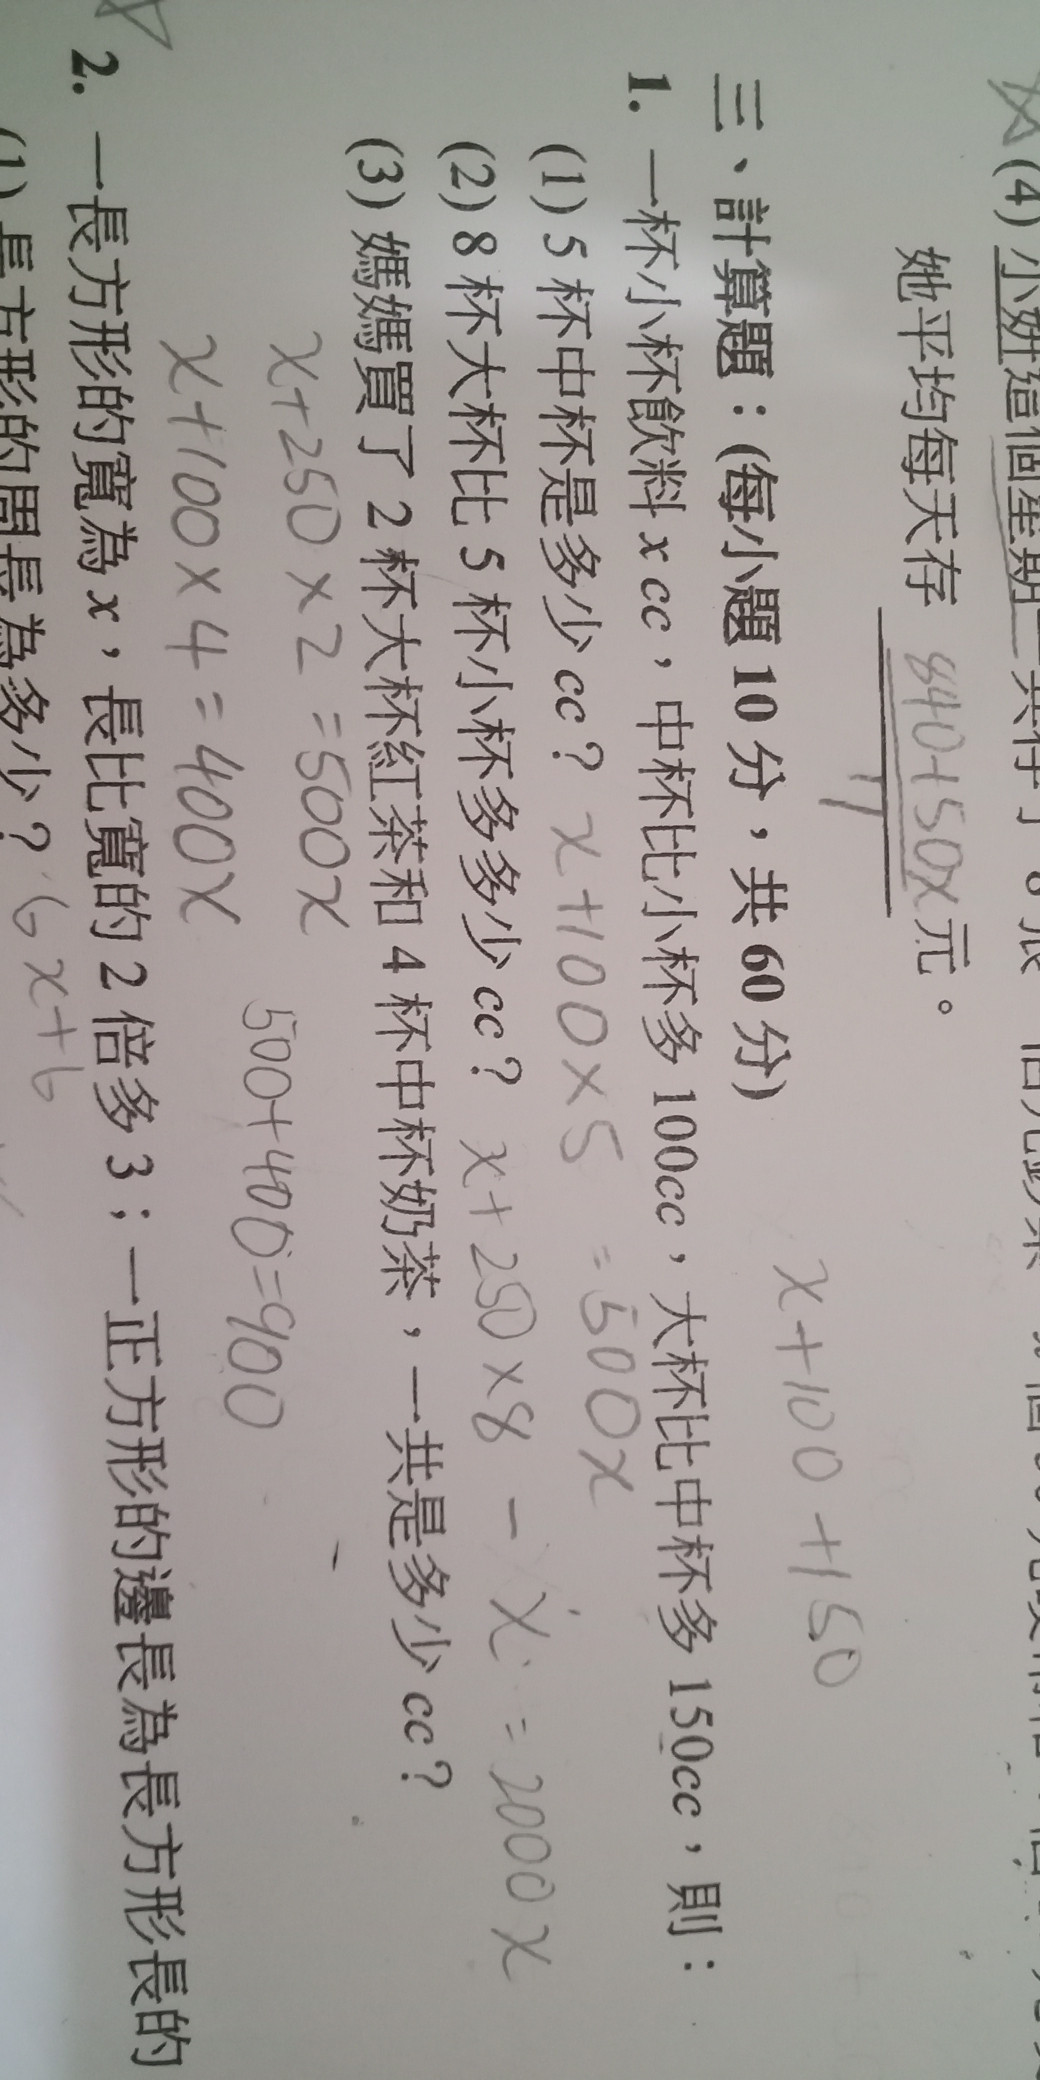 (4) 小妍這個星期一共存了 8 張
她平均每天存 840+50x 元。
7
三、計算題：(每小題 10 分，共 60 分)
x+100+150
1. 一杯小杯飲料 x cc，中杯比小杯多 100cc，大杯比中杯多 150cc，則：
(1) 5 杯中杯是多少 cc？ x+100×5 =500x
(2) 8 杯大杯比 5 杯小杯多多少 cc？ x+250×8 - x =2000x
(3) 媽媽買了 2 杯大杯紅茶和 4 杯中杯奶茶，一共是多少 cc？
x+250×2 =500x
x+100×4=400x 500+400=900
2. 一長方形的寬為 x，長比寬的 2 倍多 3；一正方形的邊長為長方形長的
(1) 長方形的周長為多少？ 6x+6